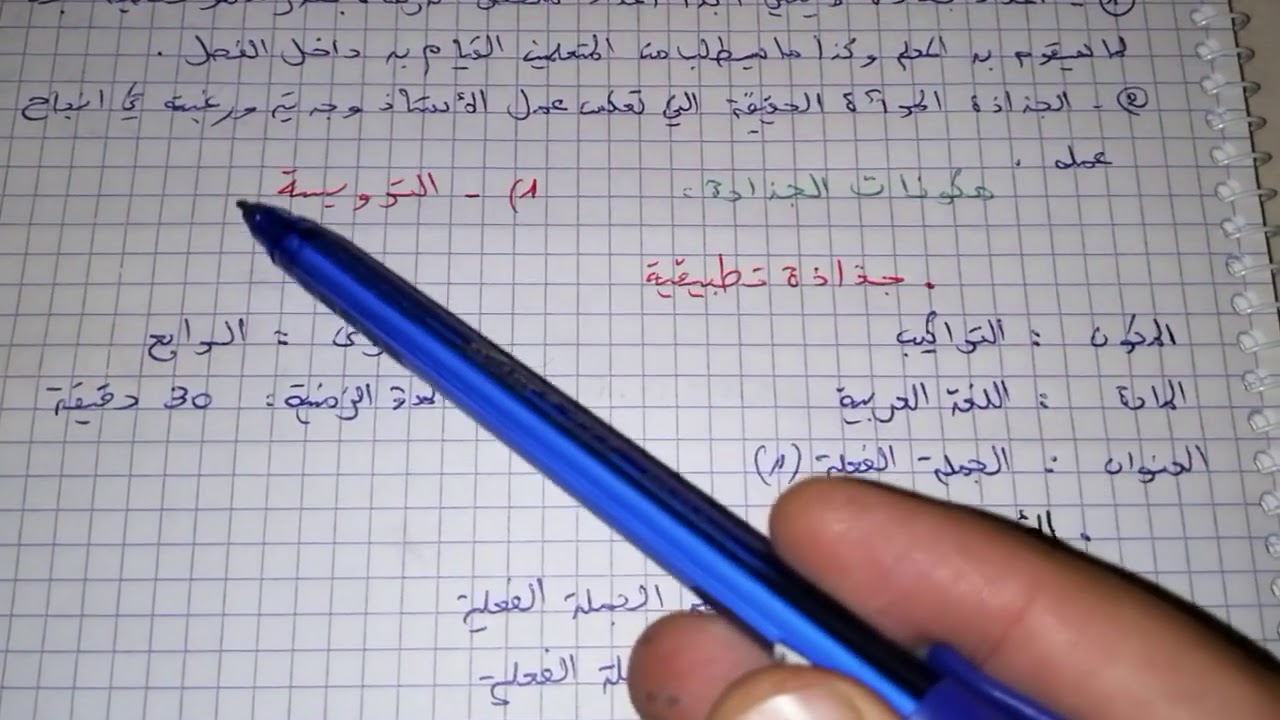 لما سيقوم به المعلم وكذا ما سيطلب من المتعلمين القيام به داخل الفصل .
② - الجذاذة المرآة الحقيقية التي تعكس عمل الأستاذ وجديته ورغبته في إنجاح
عمله .
مكونات الجذاذة : 1) - الترويسة
. جذاذة تطبيقية
المكون : التراكيب : الرابع
المادة : اللغة العربية المدة الزمنية : 30 دقيقة
العنوان : الجملة الفعلية (1)
الجملة الفعلية
الفعلية